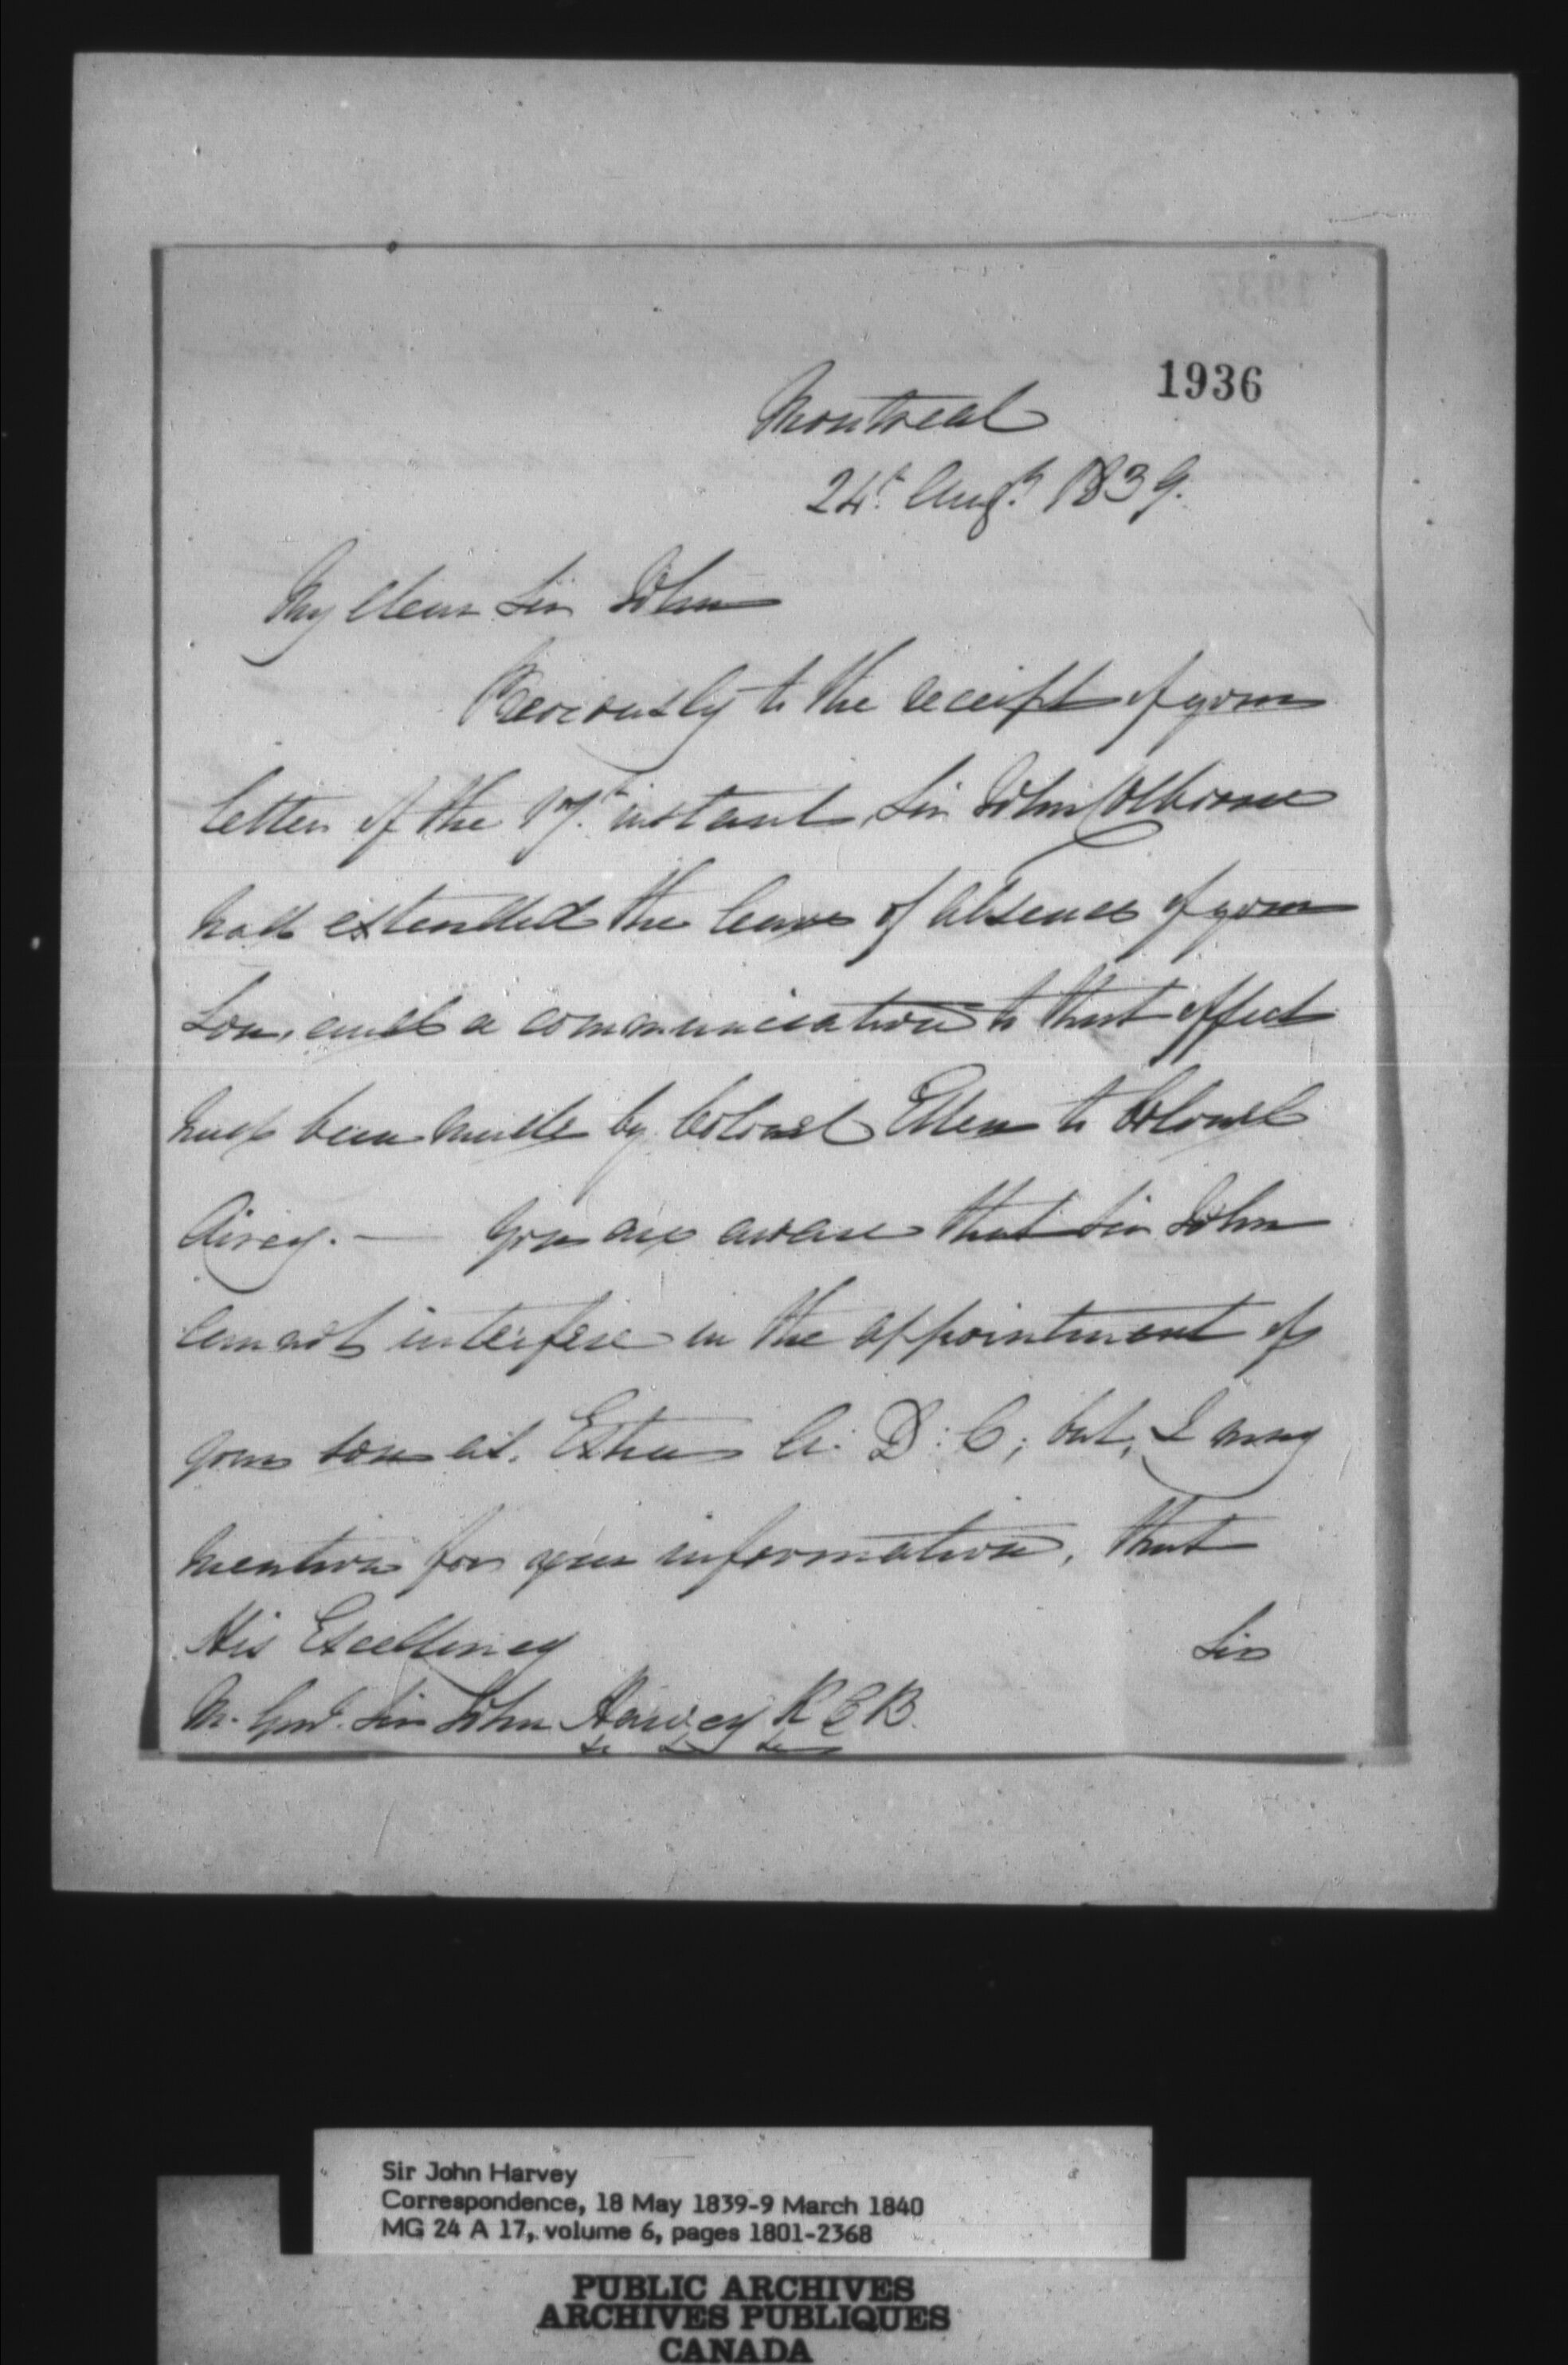 1936
Montreal
24th Augt 1839.
My dear Sir John
Previously to the receipt of your
letter of the 17th instant, Sir John Colborne
had extended the leave of absence of your
Son, and a communication to that effect
had been made by Colonel Eden to Colonel
Airey. — You are aware that Sir John
cannot interfere in the appointment of
your son as Extra A: D: C; but, I may
mention for your information, that
Sir
His Excellency
M. Genl. Sir John Harvey K C B.
&c &c &c
Sir John Harvey
Correspondence, 18 May 1839-9 March 1840
MG 24 A 17, volume 6, pages 1801-2368
PUBLIC ARCHIVES
ARCHIVES PUBLIQUES
CANADA